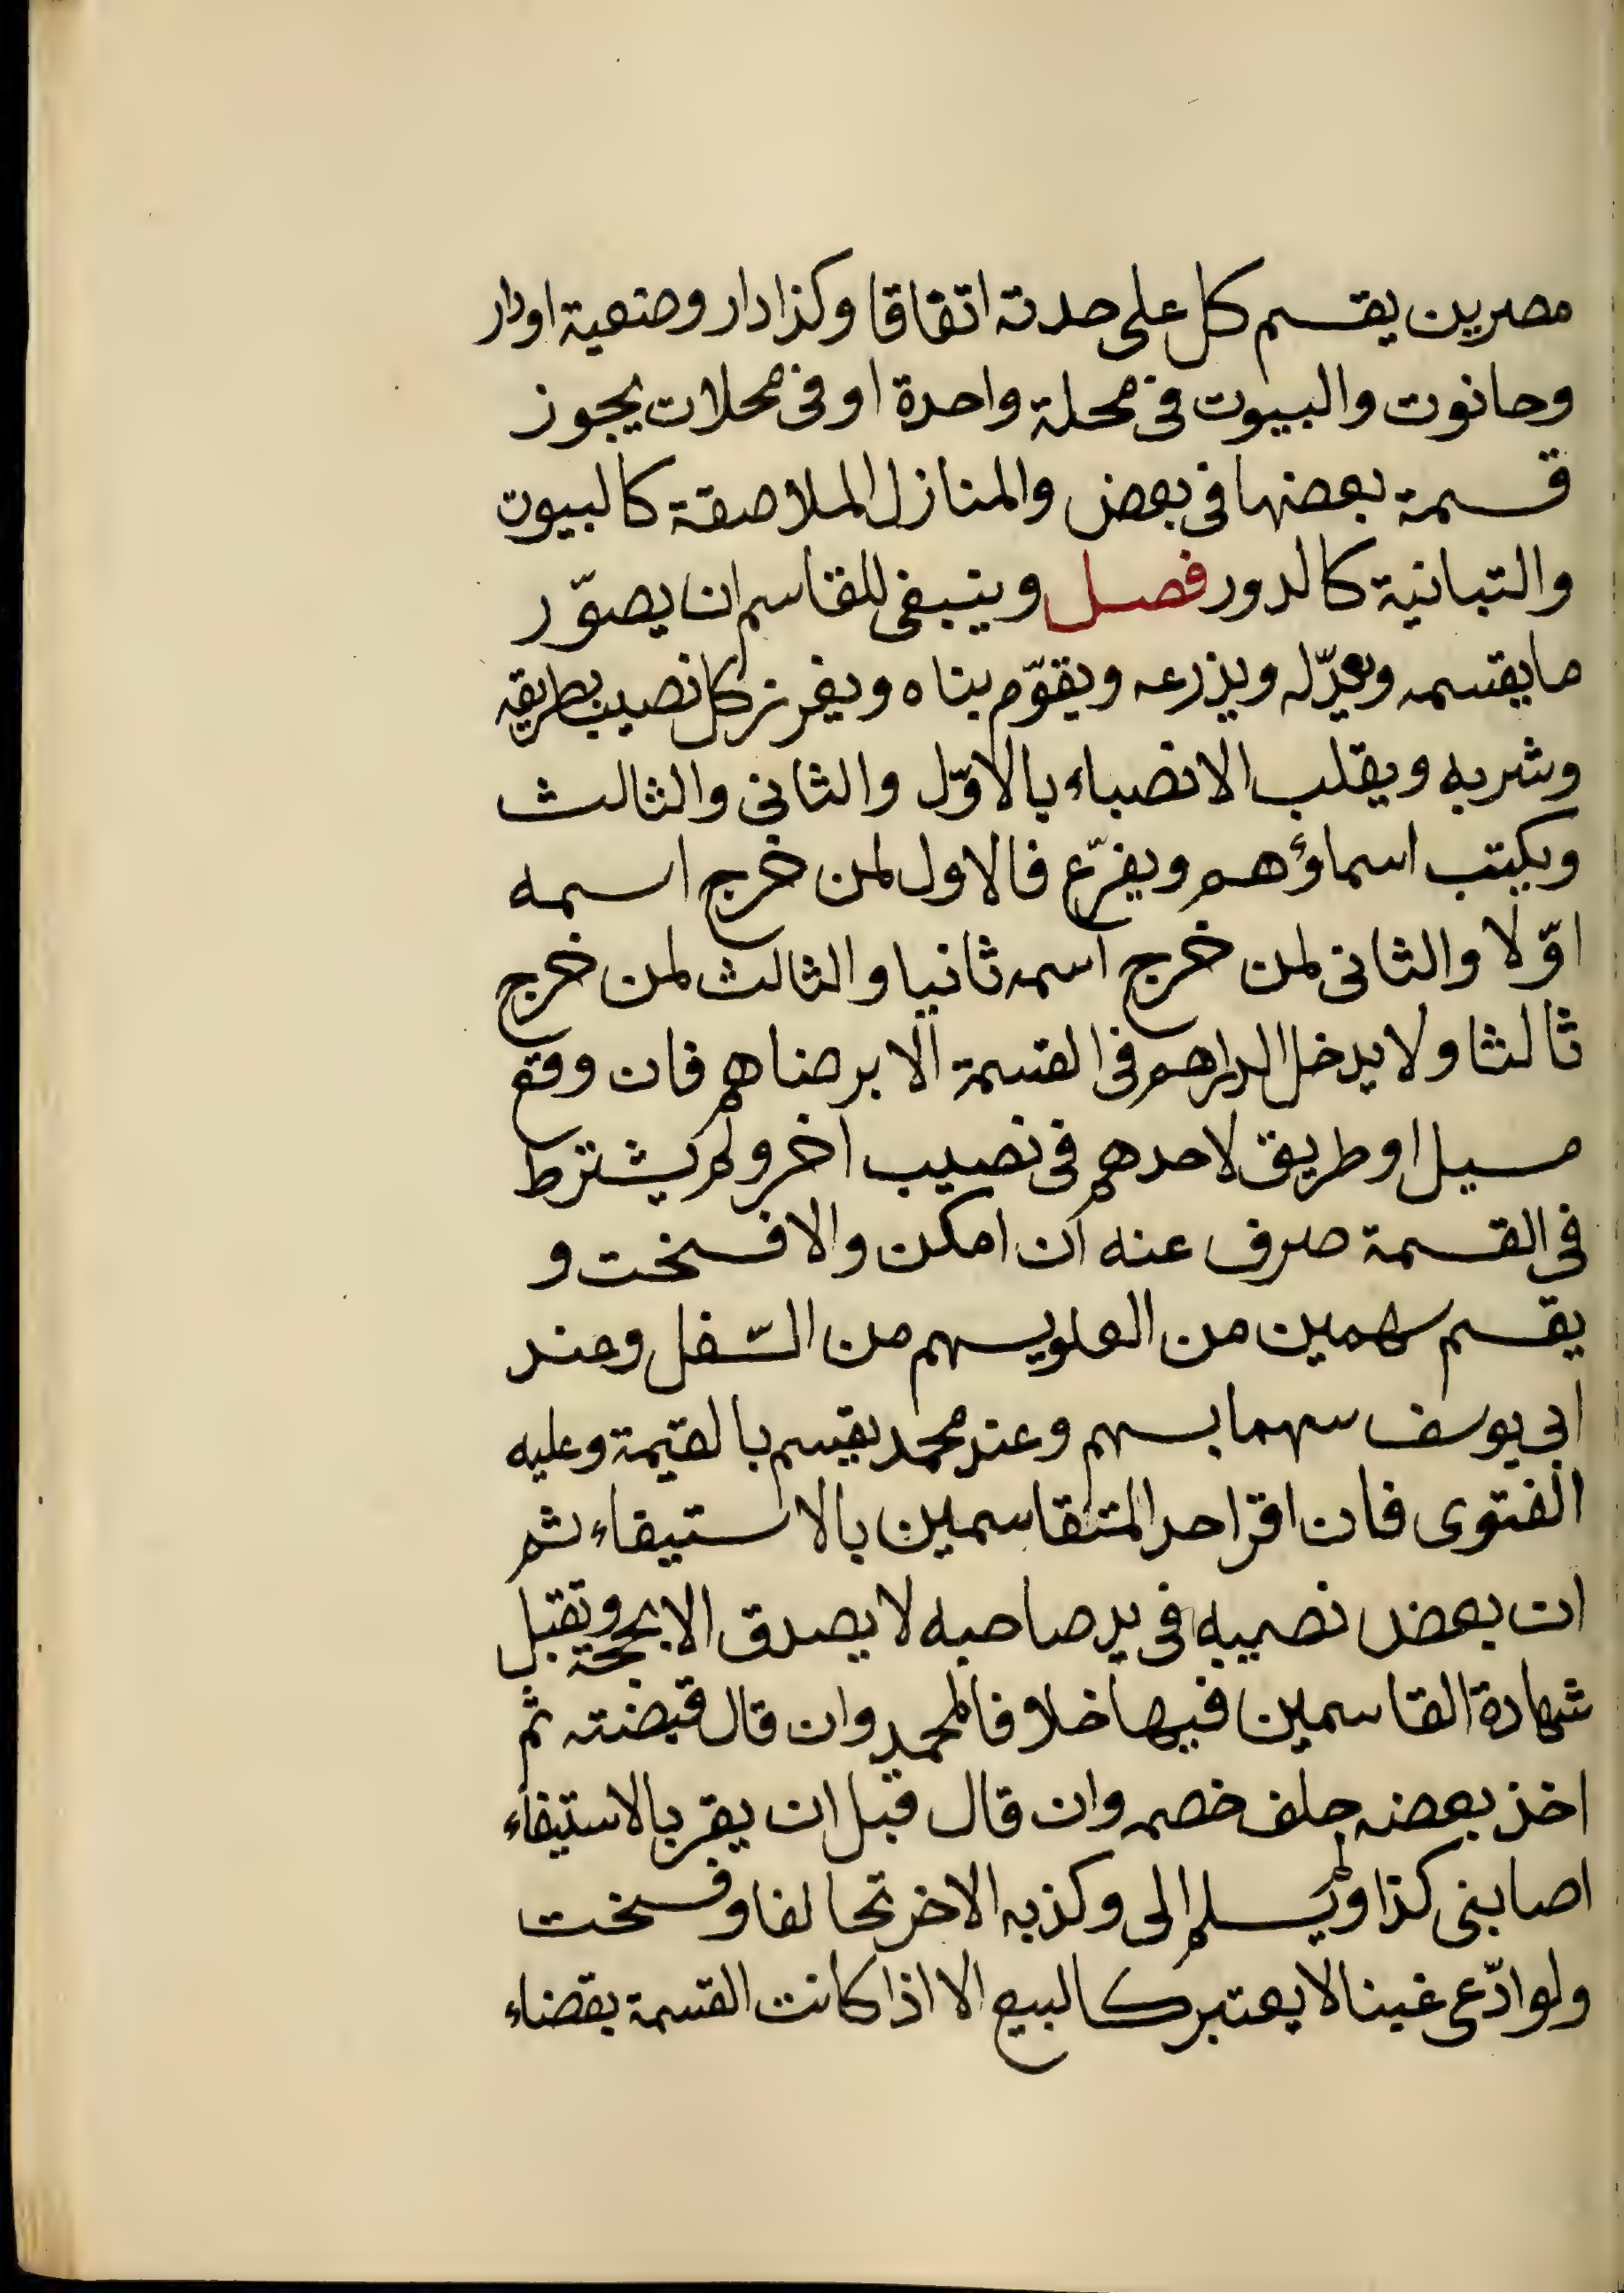 مصرين يقسم كل على حدته اتفاقا وكذا دار وضعية او دار
وحانوت والبيوت فى محلة واحدة او فى محلات يجوز
قسمة بعضها فى بعض والمنازل الملاصقة كالبيوت
والتبانية كالدور فصل وينبغى للقاسم ان يصوّر
ما يقسمه ويعدّله ويذرعه ويقوّم بناه ويفرز كل نصيب بطريقه
وشربه ويقلب الانصباء بالاوّل والثانى والثالث
ويكتب اسماؤهم ويفرّع فالاول لمن خرج اسمه
اوّلا والثانى لمن خرج اسمه ثانيا والثالث لمن خرج
ثالثا ولا يدخل الدراهم فى القسمة الا برضاهم فان وقع
مسيل او طريق لاحدهم فى نصيب آخر ولم يشترط
فى القسمة صرف عنه ان امكن والا فسخت و
يقسم سهمين من العلو بسهم من السّفل وعند
ابى يوسف سهما بسهم وعند محمد يقسم بالقيمة وعليه
الفتوى فان اقر احد المتقاسمين بالاستيفاء ثم
ان بعض نصيبه فى يد صاحبه لا يصدق الا بحجة وتقبل
شهادة القاسمين فيها خلافا لمحمد وان قال قبضته ثم
اخذ بعضه حلف خصمه وان قال قبل ان يقر بالاستيفاء
اصابنى كذا ولم يسلم الى وكذبه الاخر تحالفا وفسخت
ولو ادّعى غينا لا يعتبر كالبيع الا اذا كانت القسمة بقضاء